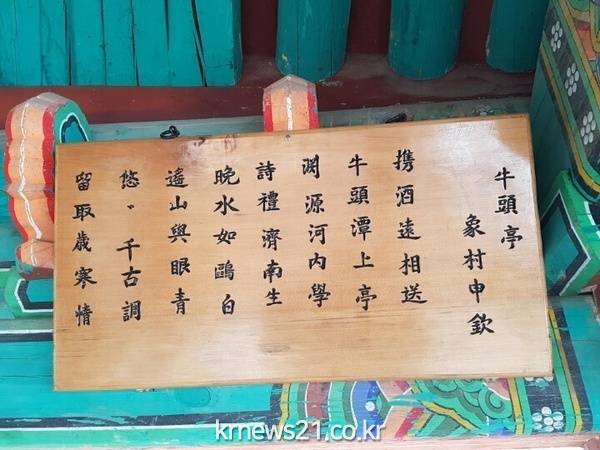 牛頭亭
象村申欽
携酒遠相送
牛頭潭上亭
渊源河内學
詩禮濟南生
晩水如鷗白
遙山與眼青
悠〻千古調
留取歲寒情
krnews21.co.kr